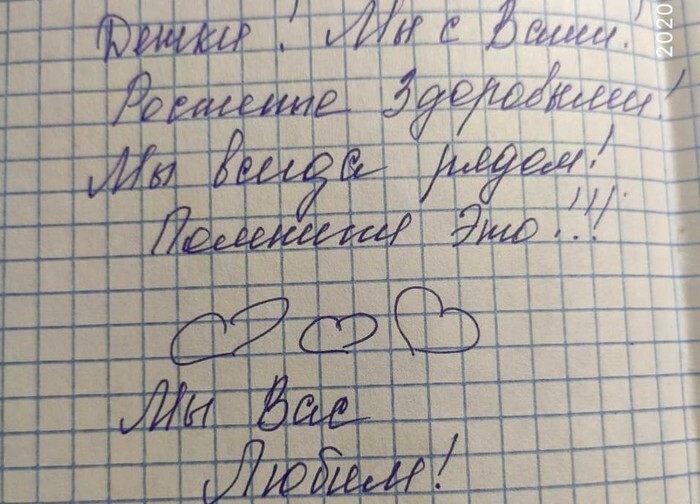 Детки! Мы с Вами!
Растите Здоровыми!
Мы всегда рядом!
Помните Это!!!
Мы Вас
Любим!
2020